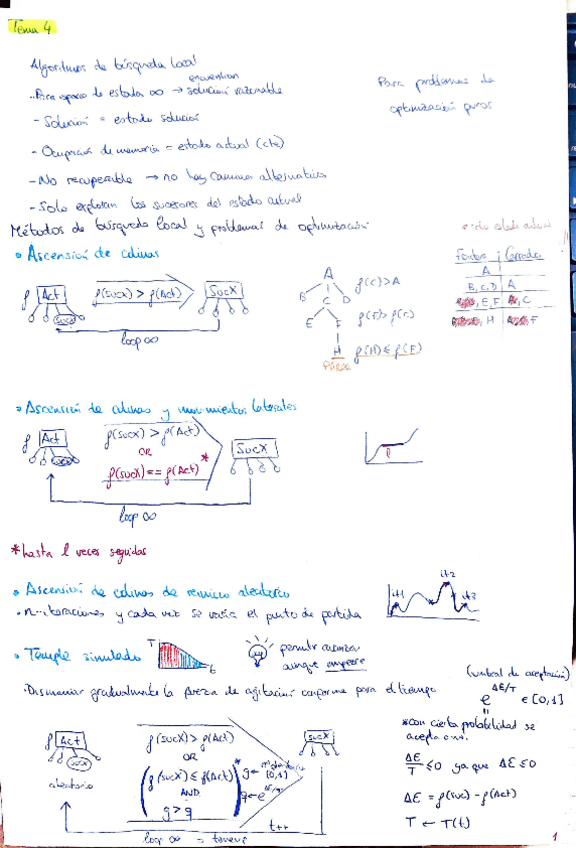 Tema 4
Algoritmos de búsqueda local
encuentran
- Para espacio de estados ∞ → solución razonable
Para problemas de
optimización puros
- Solución = estado solución
- Ocupación de memoria = estado actual (cte)
- No recuperable → no hay caminos alternativos
- Solo exploran los sucesores del estado actual
Métodos de búsqueda local y problemas de optimización
estado actual
• Ascensión de colinas
Cerrados
A
B, C, D | A
, E, F | , C
, H | F
f Act
f(sucx) > f(Act)
SucX
sucx
loop ∞
A
B C D
f(C)>A
E F
f(F)>f(C)
H f(H)≤f(F)
• Ascensión de colinas y movimientos laterales
f Act
f(sucx) > f(Act)
OR
f(sucx) == f(Act) *
SucX
sucx
l
loop ∞
* hasta l veces seguidas
• Ascensión de colinas de reinicio aleatorio
it1
it2
it3
• n-iteraciones y cada vez se varía el punto de partida
• Temple simulado
T
t
permitir avanzar
aunque empeore
(umbral de aceptación)
- Disminuir gradualmente la fuerza de agitación conforme pasa el tiempo
e^ΔE/T ∈ [0,1]
f Act
sucx
aleatorio
f(sucx) > f(Act)
OR
(f(sucx) ≤ f(Act)
AND
g > q) *
[0,1]
SucX
t++
loop ∞
* con cierta probabilidad se
acepta
ΔE/T ≤ 0 ya que ΔE ≤ 0
ΔE = f(suc) - f(Act)
T ← T(t)
1